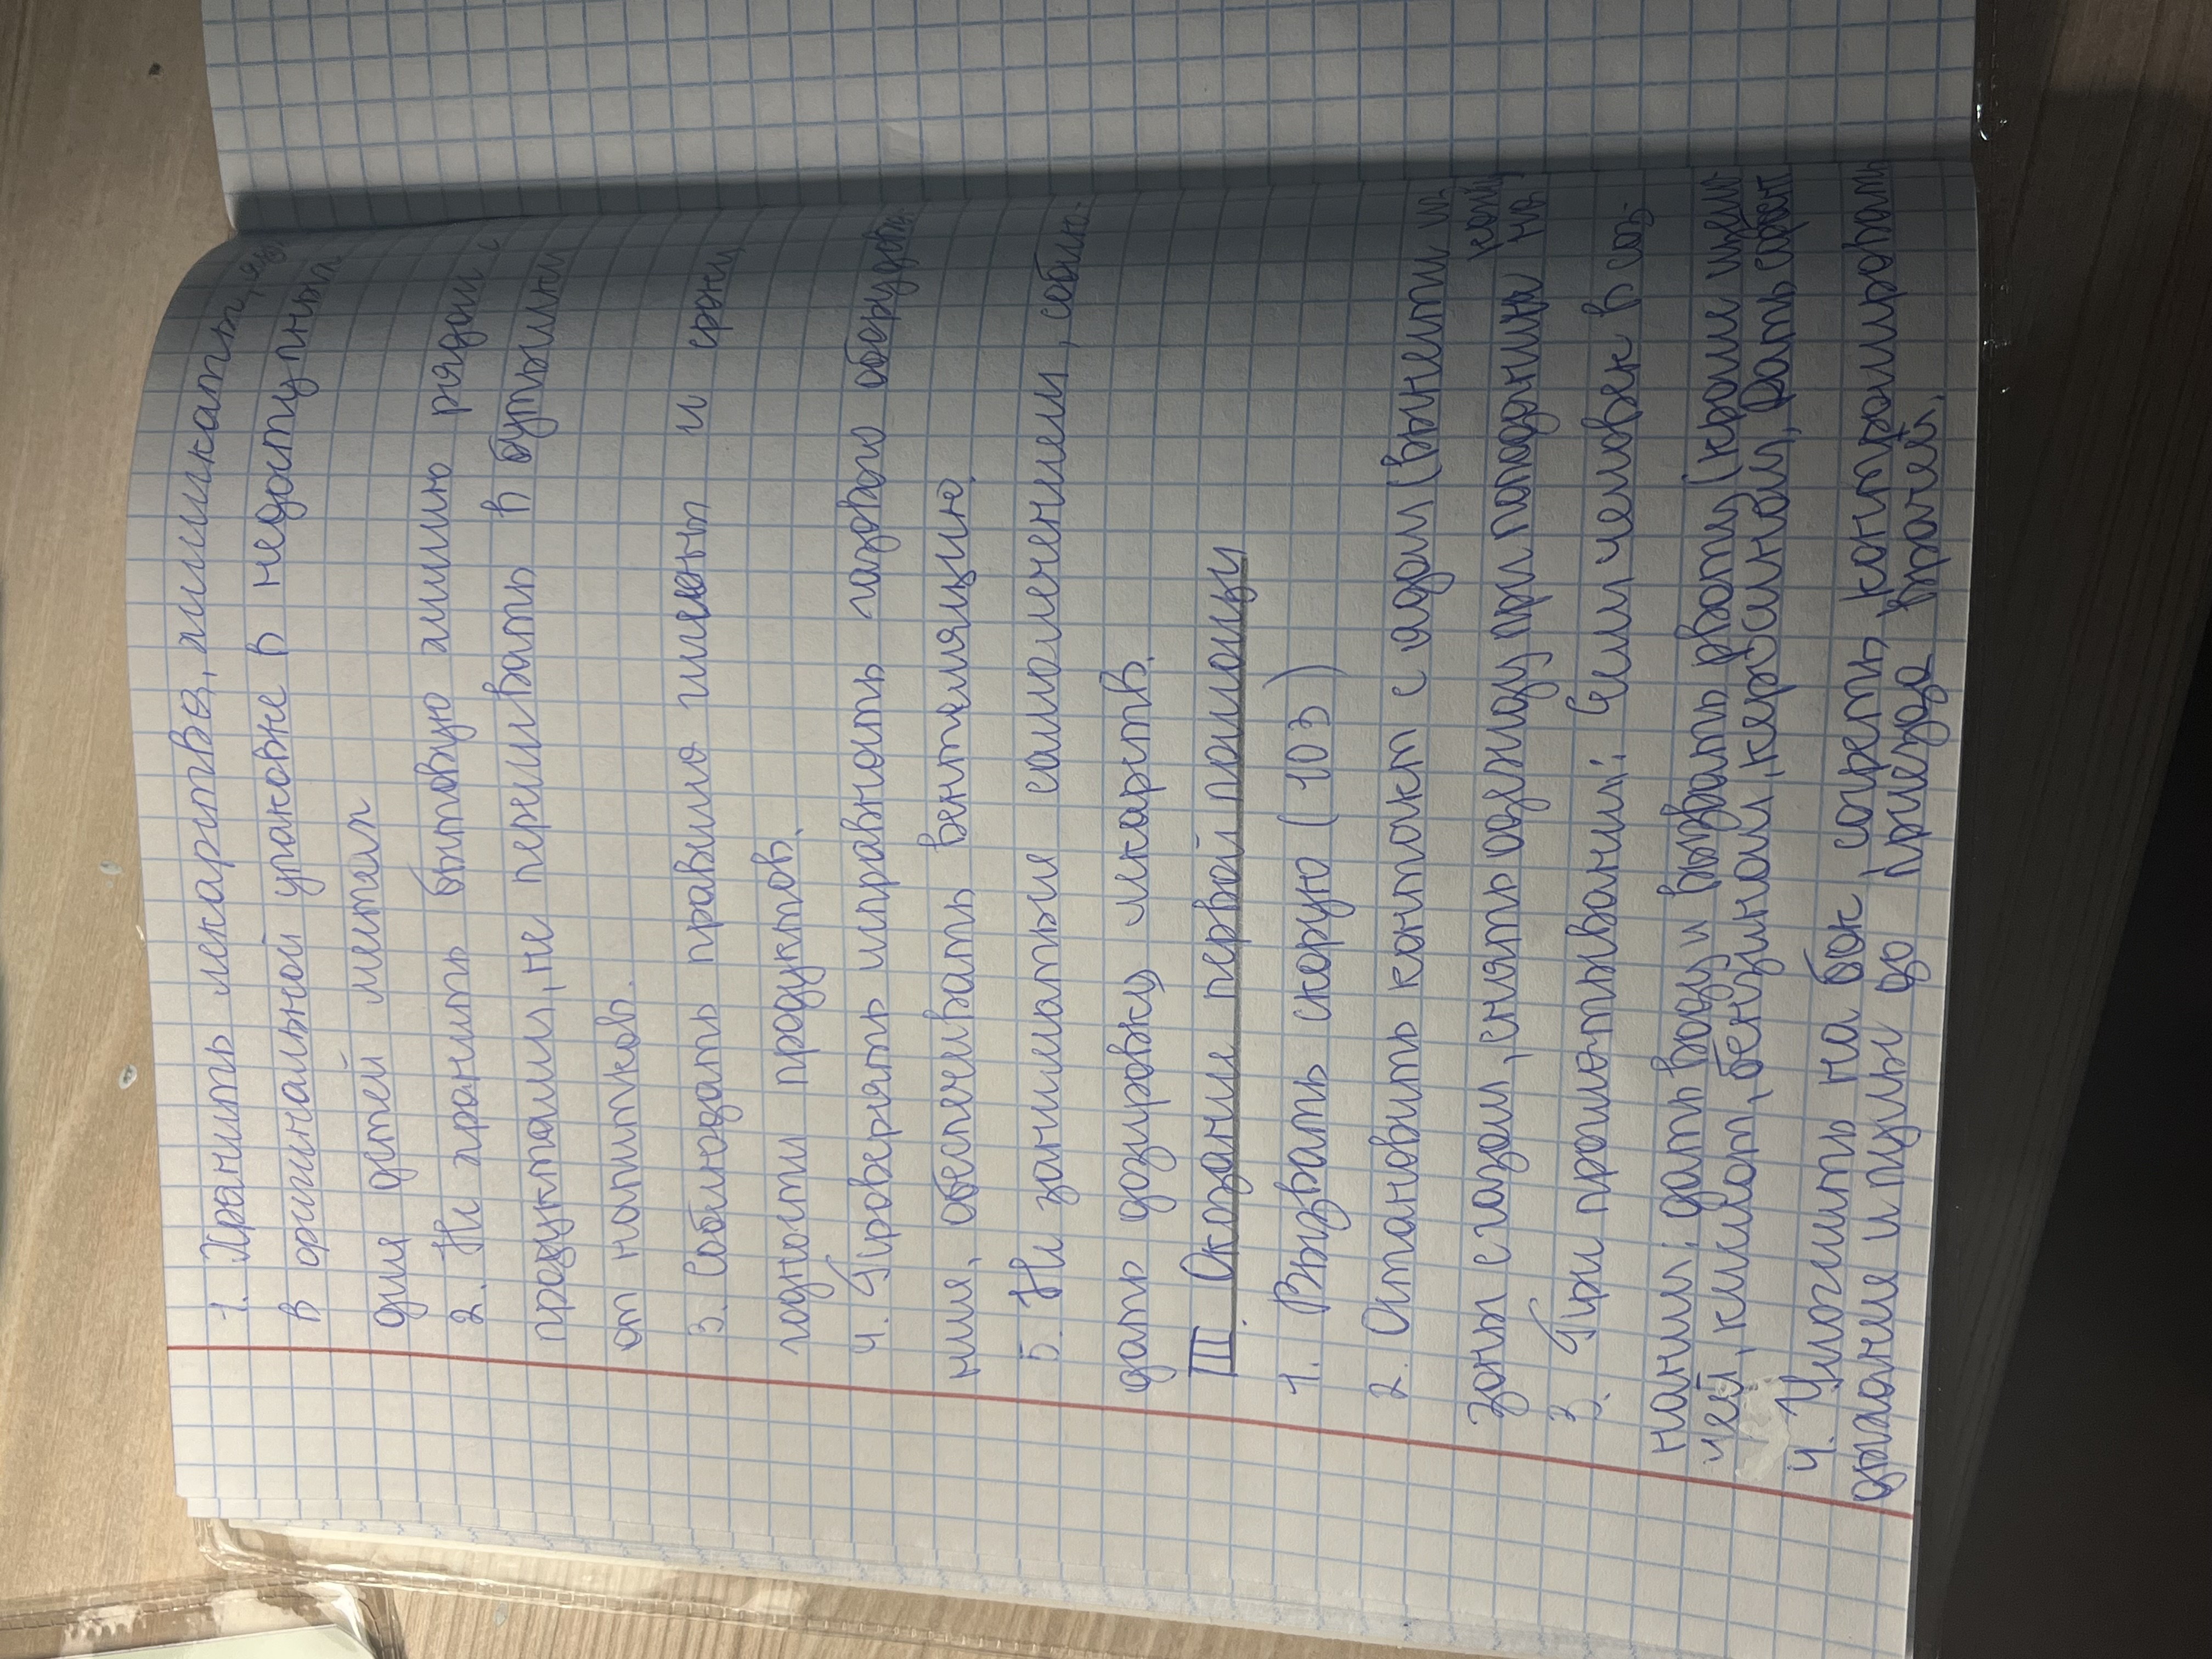 1. Хранить лекарства, химикаты, яды
в оригинальной упаковке в недоступных
для детей местах
2. Не хранить бытовую химию рядом с
продуктами, не переливать в бутылки
от напитков.
3. Соблюдать правило гигиены и сроки
годности продуктов.
4. Проверять исправность газового оборудова
ние, обеспечивать вентиляцию.
5. Не заниматься самолечением, соблю-
дать дозировку лекарств.
III. Оказание первой помощи
1. Вызвать скорую (103)
2. Остановить контакт с ядом (вынести из
зоны с газом, снять одежду при попадании на кожу
3. При проглатывании: Если человек в соз-
нании, дать воду и вызвать рвоту (кроме щело
чей, кислот, бензином, керосином, Дать сорбент
4. Уложить на бок, согреть, контролировать
дыхание и пульс до приезда врачей.